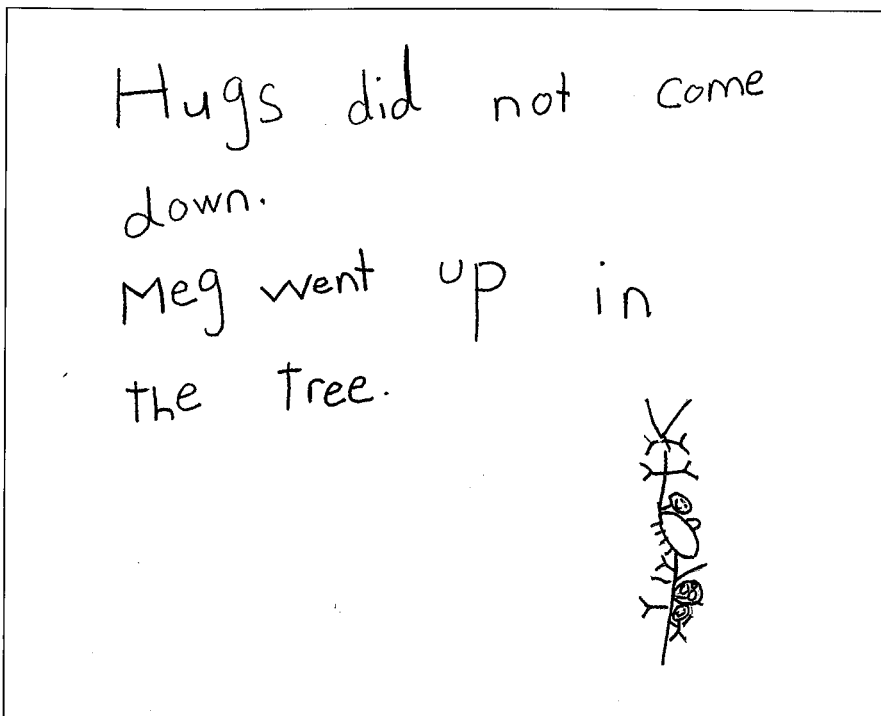 Hugs did not come
down.
Meg went up in
the tree.